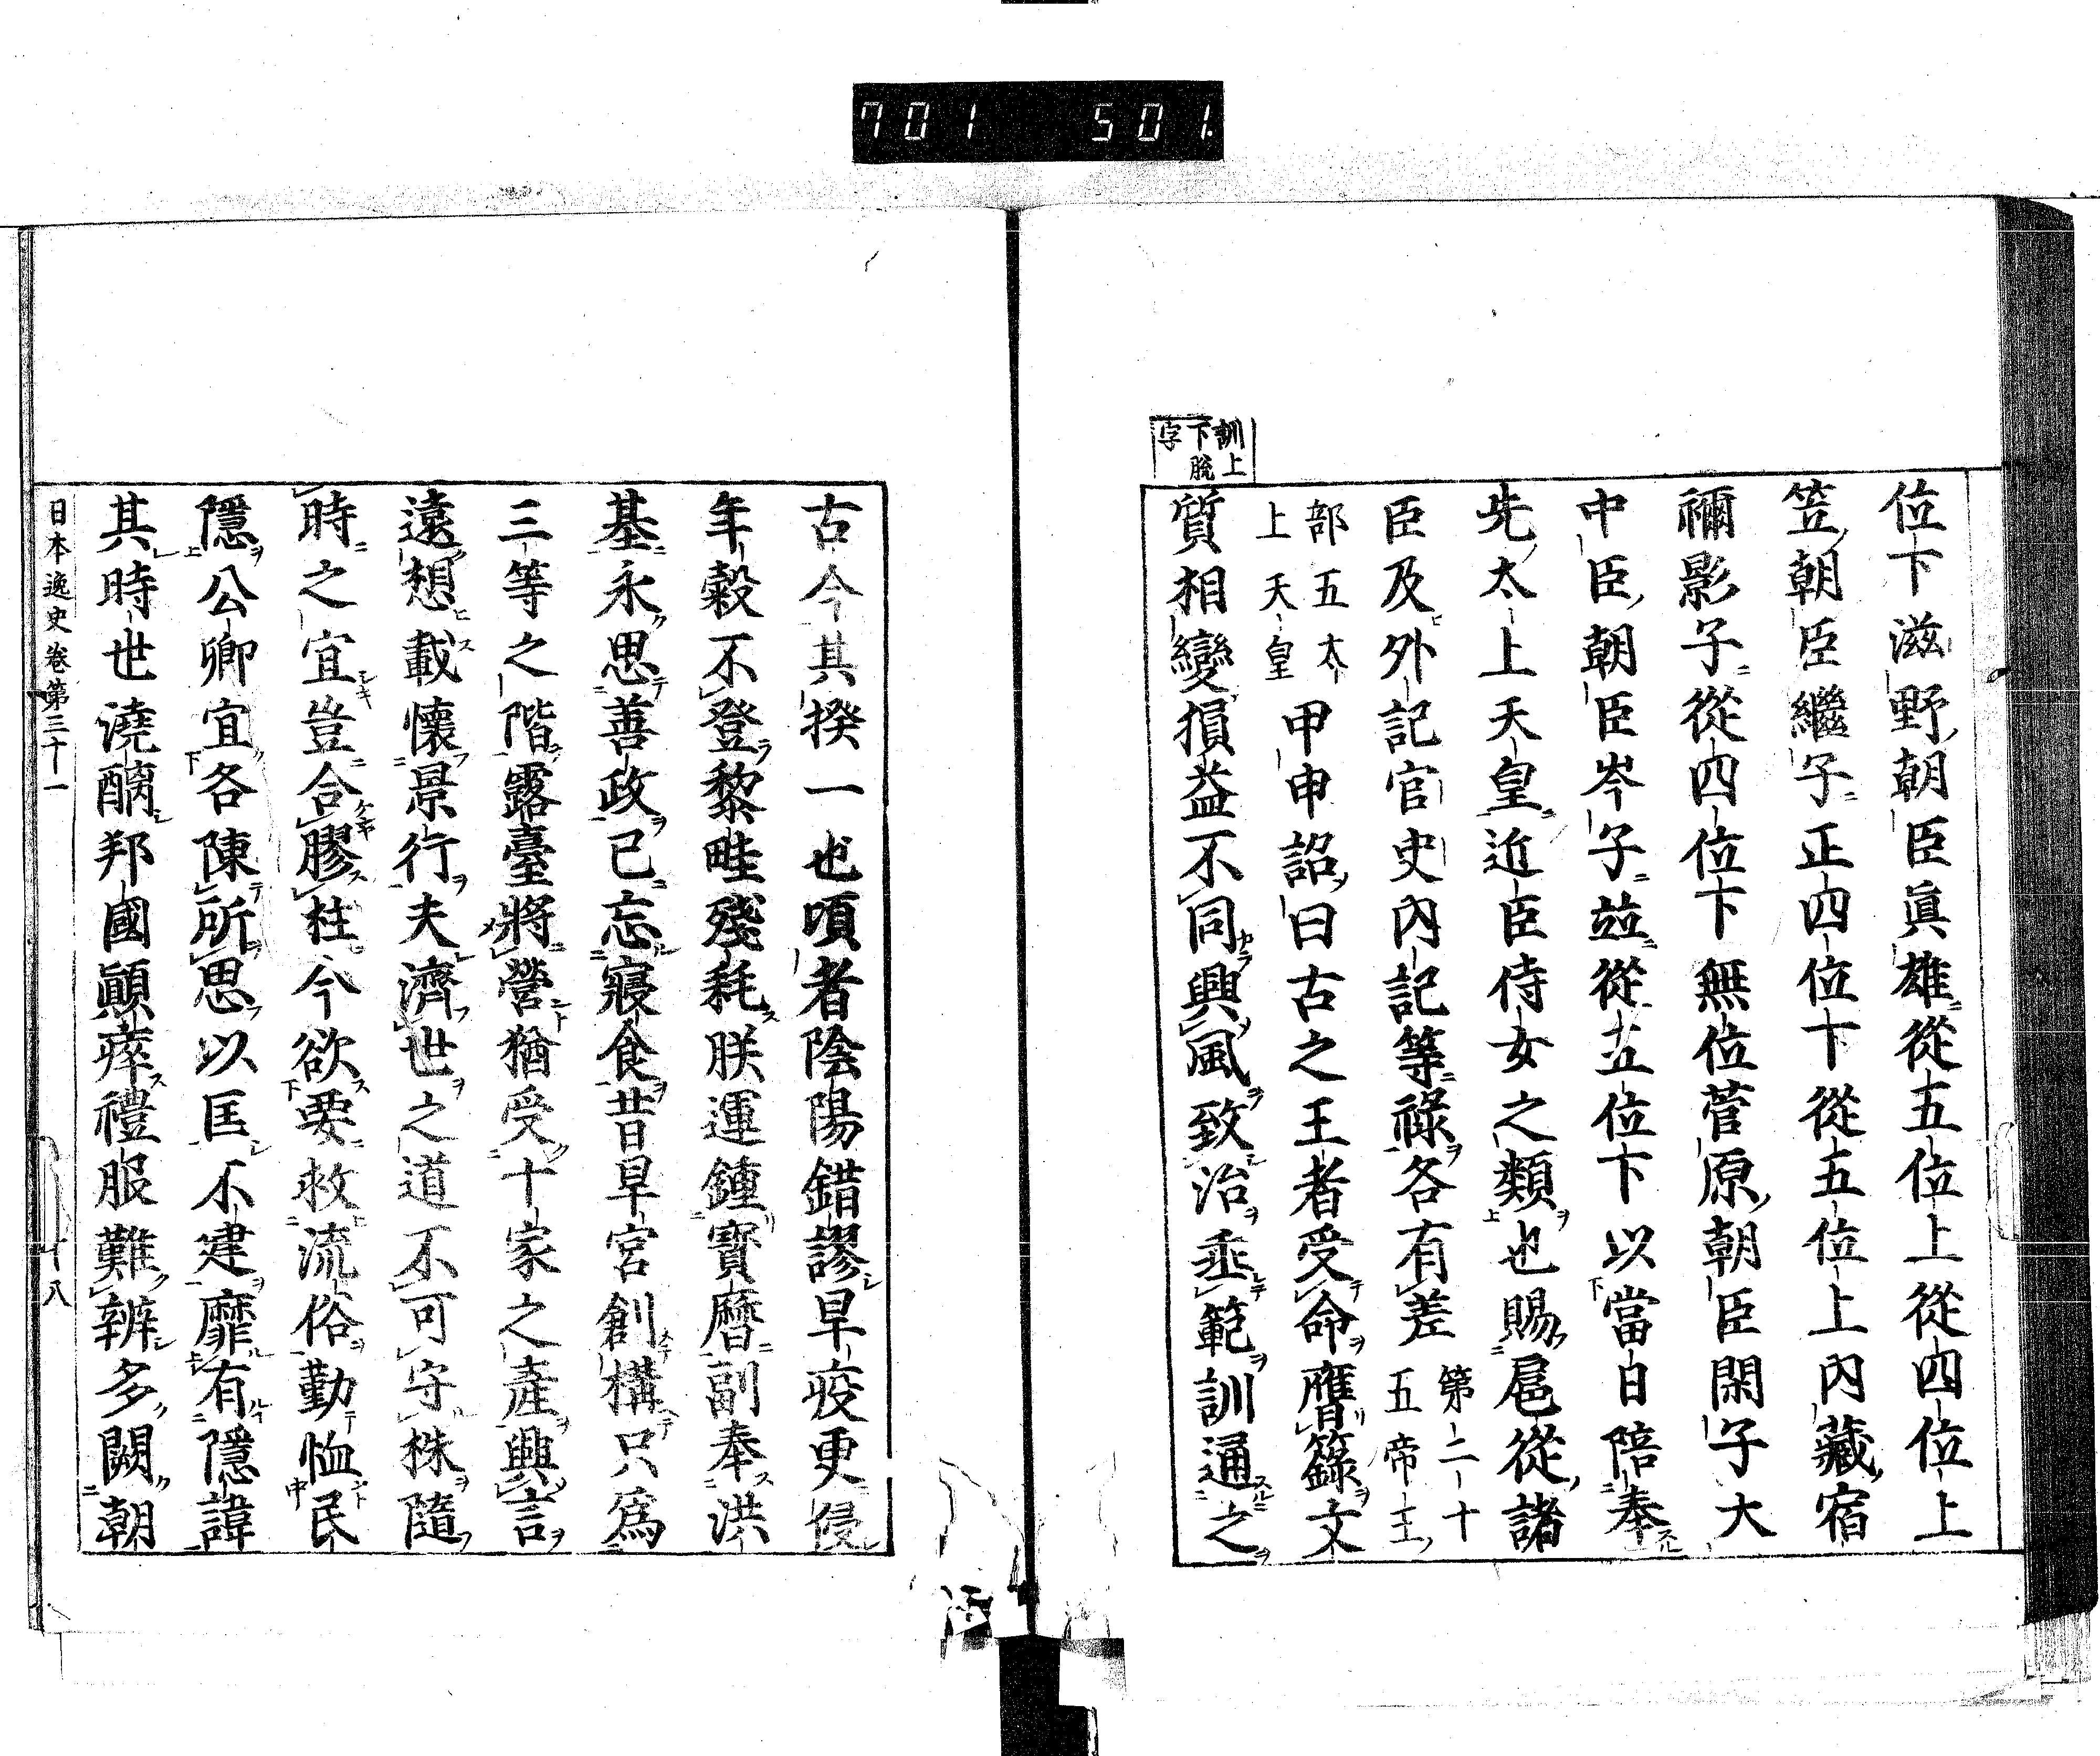 701 501
訓上
下脫
字
位下滋野朝臣眞雄從五位上從四位上
笠朝臣繼子正四位下從五位上內藏宿
禰影子從四位下無位菅原朝臣閑子大
中臣朝臣岑子並從五位下以當日陪奉
先太上天皇近臣侍女之類也賜扈從諸
臣及外記官史內記等祿各有差第二十
五帝王
部五太
上天皇甲申詔曰古之王者受命膺籙文
質相變損益不同興風致治垂範訓通之
古今其揆一也頃者陰陽錯謬旱疫更侵
年穀不登黎甿殘耗朕運鍾寶曆副奉洪
基永思善政已忘寢食昔卑宮創構只爲
三等之階露臺將營猶受十家之產興言
遠想載懷景行夫濟世之道不可守株隨
時之宜豈合膠柱今欲要救流俗勤恤民
隱公卿宜各陳所思以匡不逮靡有隱諱
其時世澆醨邦國顚瘁禮服難辨多闕朝
日本逸史卷第三十一
十八